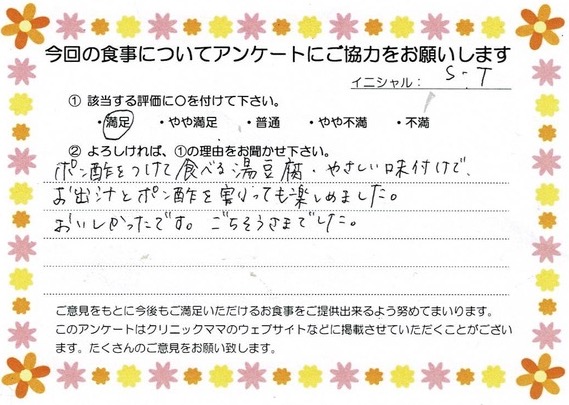 今回の食事についてアンケートにご協力をお願いします
イニシャル： S・T
① 該当する評価に○を付けて下さい。
・満足 ・やや満足 ・普通 ・やや不満 ・不満
② よろしければ、①の理由をお聞かせ下さい。
ポン酢をつけて食べる湯豆腐・やさしい味付けで、
お出汁とポン酢を割っても楽しめました。
おいしかったです。ごちそうさまでした。
ご意見をもとに今後もご満足いただけるお食事をご提供出来るよう努めてまいります。
このアンケートはクリニックママのウェブサイトなどに掲載させていただくことがござい
ます。たくさんのご意見をお願い致します。